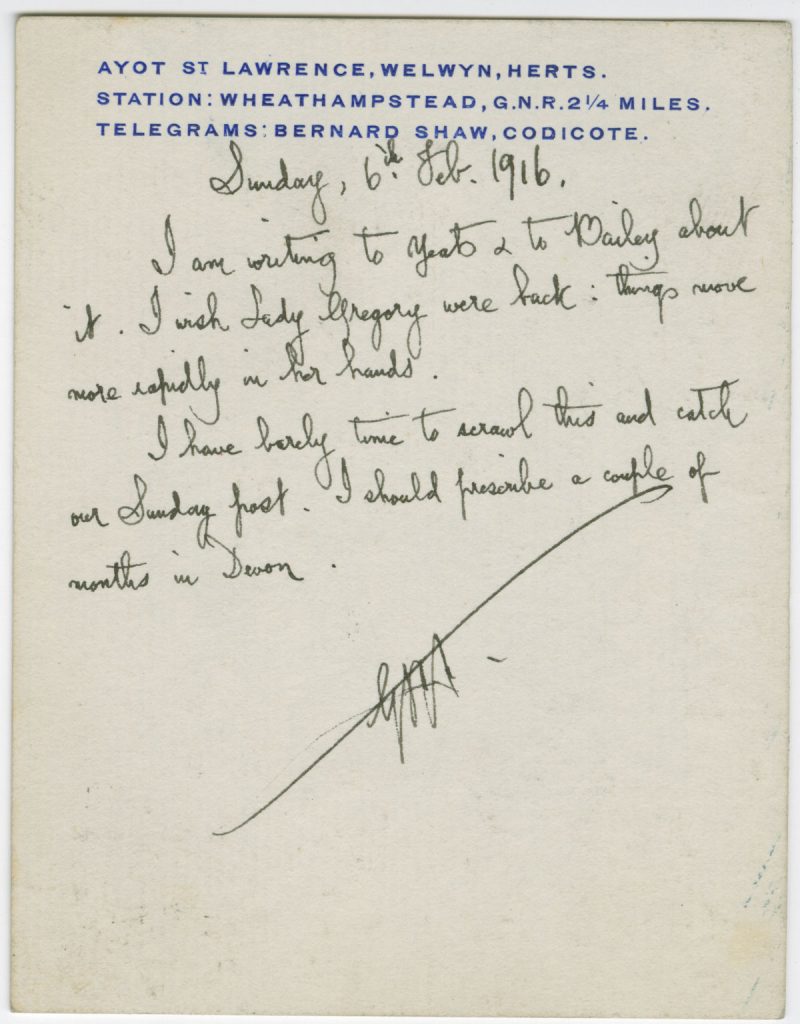 AYOT ST LAWRENCE, WELWYN, HERTS.
STATION: WHEATHAMPSTEAD, G.N.R. 2¼ MILES.
TELEGRAMS: BERNARD SHAW, CODICOTE.
Sunday, 6th. Feb. 1916.
I am writing to Yeats & to Bailey about
it. I wish Lady Gregory were back: things move
more rapidly in her hands.
I have barely time to scrawl this and catch
our Sunday post. I should prescribe a couple of
months in Devon.